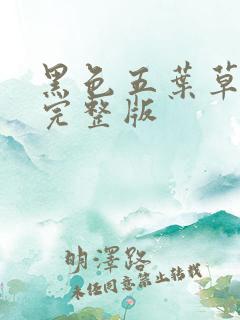 黑色五葉草
完整版
明澤路
未經同意禁止轉載